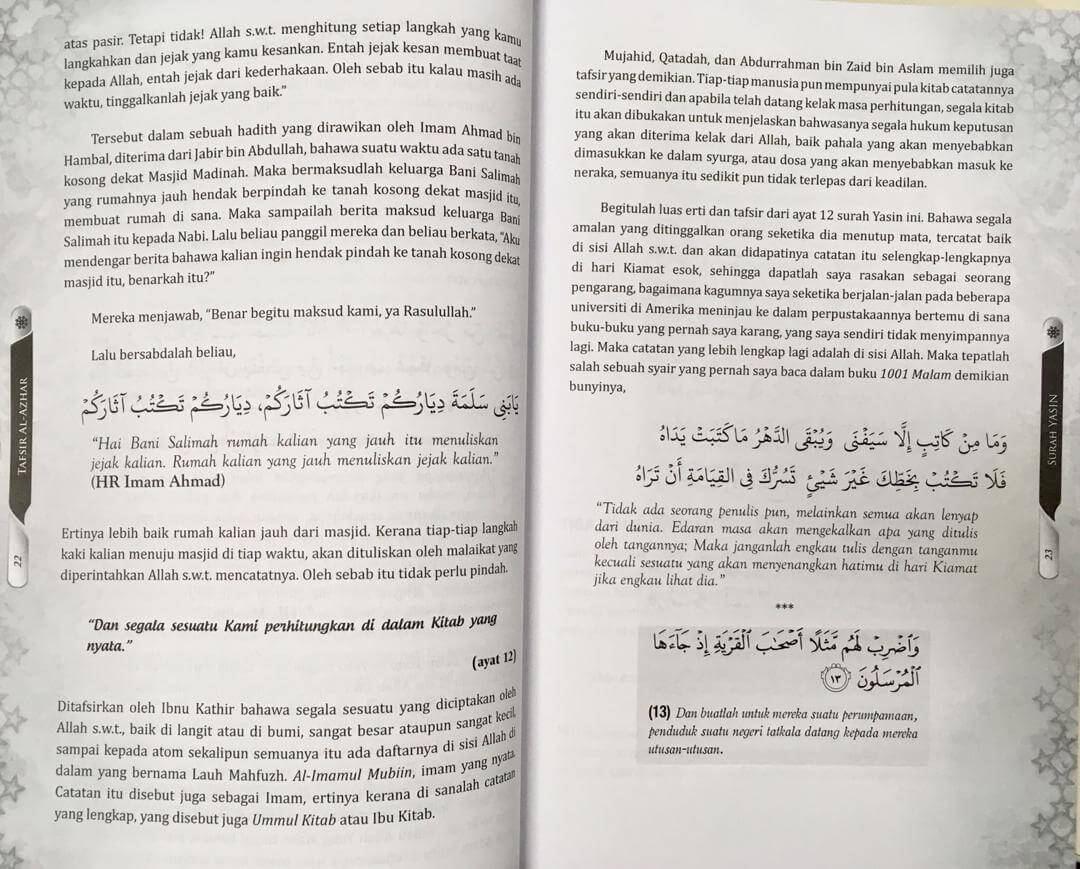 atas pasir. Tetapi tidak! Allah s.w.t. menghitung setiap langkah yang kamu
langkahkan dan jejak yang kamu kesankan. Entah jejak kesan membuat taat
kepada Allah, entah jejak dari kederhakaan. Oleh sebab itu kalau masih ada
waktu, tinggalkanlah jejak yang baik."
Tersebut dalam sebuah hadith yang dirawikan oleh Imam Ahmad bin
Hambal, diterima dari Jabir bin Abdullah, bahawa suatu waktu ada satu tanah
kosong dekat Masjid Madinah. Maka bermaksudlah keluarga Bani Salimah
yang rumahnya jauh hendak berpindah ke tanah kosong dekat masjid itu,
membuat rumah di sana. Maka sampailah berita maksud keluarga Bani
Salimah itu kepada Nabi. Lalu beliau panggil mereka dan beliau berkata, "Aku
mendengar berita bahawa kalian ingin hendak pindah ke tanah kosong dekat
masjid itu, benarkah itu?"
Mereka menjawab, "Benar begitu maksud kami, ya Rasulullah."
Lalu bersabdalah beliau,
يَابَنِي سَلَمَةَ دِيَارُكُمْ تَكْتُبُ آثَارَكُمْ، دِيَارُكُمْ تَكْتُبُ آثَارَكُمْ
"Hai Bani Salimah rumah kalian yang jauh itu menuliskan
jejak kalian. Rumah kalian yang jauh menuliskan jejak kalian."
(HR Imam Ahmad)
Ertinya lebih baik rumah kalian jauh dari masjid. Kerana tiap-tiap langkah
kaki kalian menuju masjid di tiap waktu, akan dituliskan oleh malaikat yang
diperintahkan Allah s.w.t. mencatatnya. Oleh sebab itu tidak perlu pindah.
"Dan segala sesuatu Kami perhitungkan di dalam Kitab yang
nyata."
(ayat 12)
Ditafsirkan oleh Ibnu Kathir bahawa segala sesuatu yang diciptakan oleh
Allah s.w.t., baik di langit atau di bumi, sangat besar ataupun sangat kecil,
sampai kepada atom sekalipun semuanya itu ada daftarnya di sisi Allah di
dalam yang bernama Lauh Mahfuzh. Al-Imamul Mubiin, imam yang nyata.
Catatan itu disebut juga sebagai Imam, ertinya kerana di sanalah catatan
yang lengkap, yang disebut juga Ummul Kitab atau Ibu Kitab.
TAFSIR AL-AZHAR
22
Mujahid, Qatadah, dan Abdurrahman bin Zaid bin Aslam memilih juga
tafsir yang demikian. Tiap-tiap manusia pun mempunyai pula kitab catatannya
sendiri-sendiri dan apabila telah datang kelak masa perhitungan, segala kitab
itu akan dibukakan untuk menjelaskan bahwasanya segala hukum keputusan
yang akan diterima kelak dari Allah, baik pahala yang akan menyebabkan
dimasukkan ke dalam syurga, atau dosa yang akan menyebabkan masuk ke
neraka, semuanya itu sedikit pun tidak terlepas dari keadilan.
Begitulah luas erti dan tafsir dari ayat 12 surah Yasin ini. Bahawa segala
amalan yang ditinggalkan orang seketika dia menutup mata, tercatat baik
di sisi Allah s.w.t. dan akan didapatinya catatan itu selengkap-lengkapnya
di hari Kiamat esok, sehingga dapatlah saya rasakan sebagai seorang
pengarang, bagaimana kagumnya saya seketika berjalan-jalan pada beberapa
universiti di Amerika meninjau ke dalam perpustakaannya bertemu di sana
buku-buku yang pernah saya karang, yang saya sendiri tidak menyimpannya
lagi. Maka catatan yang lebih lengkap lagi adalah di sisi Allah. Maka tepatlah
salah sebuah syair yang pernah saya baca dalam buku 1001 Malam demikian
bunyinya,
وَمَا مِنْ كَاتِبٍ إِلَّا سَيَفْنَى وَيُبْقَى الدَّهْرُ مَا كَتَبَتْ يَدَاهُ
فَلَا تَكْتُبْ بِخَطِّكَ غَيْرَ شَيْئٍ تَسُرُّكَ فِي الْقِيَامَةِ أَنْ تَرَاهُ
"Tidak ada seorang penulis pun, melainkan semua akan lenyap
dari dunia. Edaran masa akan mengekalkan apa yang ditulis
oleh tangannya; Maka janganlah engkau tulis dengan tanganmu
kecuali sesuatu yang akan menyenangkan hatimu di hari Kiamat
jika engkau lihat dia."
***
وَاضْرِبْ لَهُم مَّثَلًا أَصْحَٰبَ الْقَرْيَةِ إِذْ جَآءَهَا
الْمُرْسَلُونَ ١٣
(13) Dan buatlah untuk mereka suatu perumpamaan,
penduduk suatu negeri tatkala datang kepada mereka
utusan-utusan.
SURAH YASIN
23